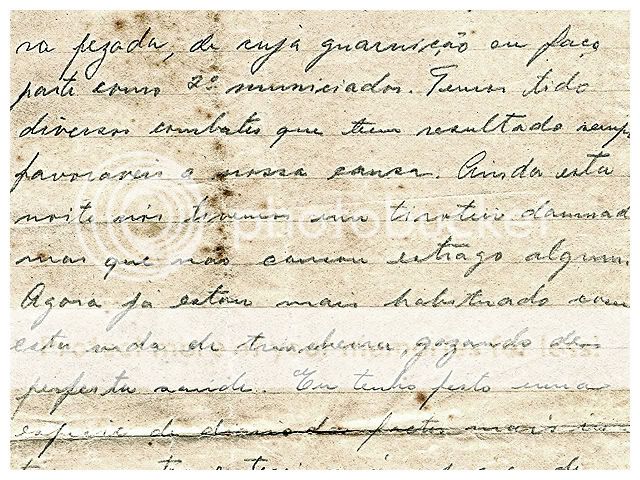 ra pezada, de cuja guarnição eu faço
parte como 2º municiador. Temos tido
diversos combates que tem resultado sempr
favoraveis a nossa causa. Ainda esta
noite nós tivemos um tiroteiu damnad
mas que não causou estrago algum.
Agora já estou mais habituado com
esta vida de trincheira, gozando de
perfeita saude. Eu tenho feito uma
especie de diario dos factos mais
photobucket